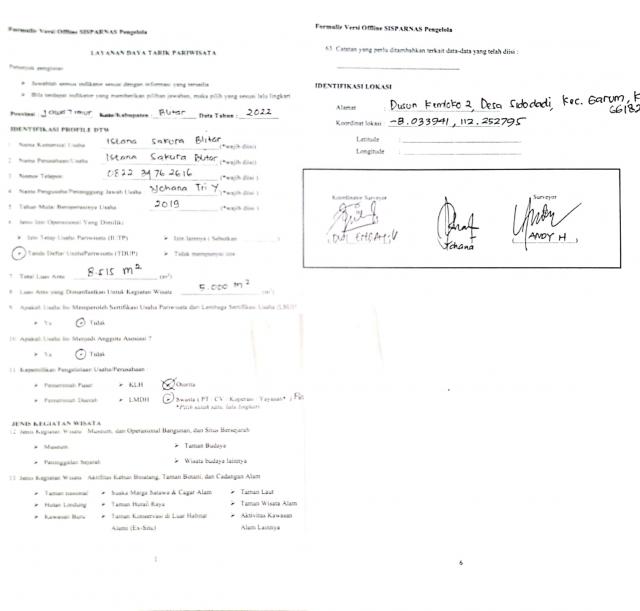 Formulir Versi Offline SISPARNAS Pengelola
LAYANAN DAYA TARIK PARIWISATA
Petunjuk pengisian
Jawablah semua indikator sesuai dengan informasi yang tersedia
Bila terdapat indikator yang memberikan pilihan jawaban, maka pilih yang sesuai lalu lingkari
Provinsi : Jawa Timur Kota/Kabupaten : Blitar Data Tahun : 2022
IDENTIFIKASI PROFILE DTW
1 Nama Komersial Usaha Istana Sakura Blitar (*wajib diisi)
2 Nama Perusahaan/Usaha Istana Sakura Blitar (*wajib diisi)
3 Nomor Telepon 0822 3476 2616 (*wajib diisi)
4 Nama Pengusaha/Penanggung Jawab Usaha Yohana Tri Y (*wajib diisi)
5 Tahun Mulai Beroperasinya Usaha 2019 (*wajib diisi)
6 Jenis Izin Operasional Yang Dimiliki
Izin Tetap Usaha Pariwisata (IUTP) Izin lainnya ( Sebutkan )
Tanda Daftar Usaha Pariwisata (TDUP) Tidak mempunyai izin
7 Total Luas Area 8.515 m² (m²)
8 Luas Area yang Dimanfaatkan Untuk Kegiatan Wisata 5.000 m² (m²)
9 Apakah Usaha Ini Memperoleh Sertifikasi Usaha Pariwisata dari Lembaga Sertifikasi Usaha (LSU)?
Ya Tidak
10 Apakah Usaha Ini Menjadi Anggota Asosiasi ?
Ya Tidak
11 Kepemilikan Pengelolaan Usaha/Perusahaan
Pemerintah Pusat KLH Otorita
Pemerintah Daerah LMDH Swasta ( PT / CV / Koperasi / Yayasan* )
*Pilih salah satu, lalu lingkari
JENIS KEGIATAN WISATA
12 Jenis Kegiatan Wisata : Museum, dan Operasional Bangunan, dan Situs Bersejarah
Museum Taman Budaya
Peninggalan Sejarah Wisata budaya lainnya
13 Jenis Kegiatan Wisata : Aktifitas Kebun Binatang, Taman Botani, dan Cadangan Alam
Taman nasional Suaka Marga Satawa & Cagar Alam Taman Laut
Hutan Lindung Taman Hutan Raya Taman Wisata Alam
Kawasan Buru Taman Konservasi di Luar Habitat Aktivitas Kawasan
Alami (Ex-Situ) Alam Lainnya
1
Formulir Versi Offline SISPARNAS Pengelola
63. Catatan yang perlu ditambahkan terkait data-data yang telah diisi :
IDENTIFIKASI LOKASI
Alamat : Dusun Kentoko 2, Desa Sidodadi, Kec. Garum, K
66182
Koordinat lokasi : -8.033941, 112.252795
Latitude :
Longitude :
Koordinator Surveyor Surveyor
Yohana ANDY H
6